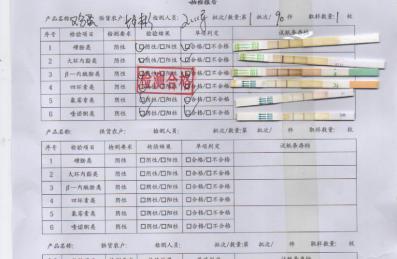 抽检报告
产品名称: 供货农户: 检测人员: 批次/数量:第1 批次/90件 取样数量:1枚
序号 检验项目 检测要求 检验结果 单项判定 试纸条存档
1 磺胺类 阴性 阴性/□阳性 合格/□不合格
2 大环内酯类 阴性 阴性/□阳性 合格/□不合格
3 β-内酰胺类 阴性 阴性/□阳性 合格/□不合格
4 四环素类 阴性 阴性/□阳性 合格/□不合格
5 氟苯尼类 阴性 阴性/□阳性 合格/□不合格
6 喹诺酮类 阴性 阴性/□阳性 合格/□不合格
检测合格
产品名称: 供货农户: 检测人员: 批次/数量:第 批次/ 件 取样数量: 枚
序号 检验项目 检测要求 检验结果 单项判定 试纸条存档
1 磺胺类 阴性 □阴性/□阳性 □合格/□不合格
2 大环内酯类 阴性 □阴性/□阳性 □合格/□不合格
3 β-内酰胺类 阴性 □阴性/□阳性 □合格/□不合格
4 四环素类 阴性 □阴性/□阳性 □合格/□不合格
5 阴性 □阴性/□阳性 □合格/□不合格
6 喹诺酮类 阴性 □阴性/□阳性 □合格/□不合格
产品名称: 供货农户: 检测人员: 批次/数量:第 批次/ 件 取样数量: 枚
序号 检验项目 检测要求 检验结果 单项判定 试纸条存档